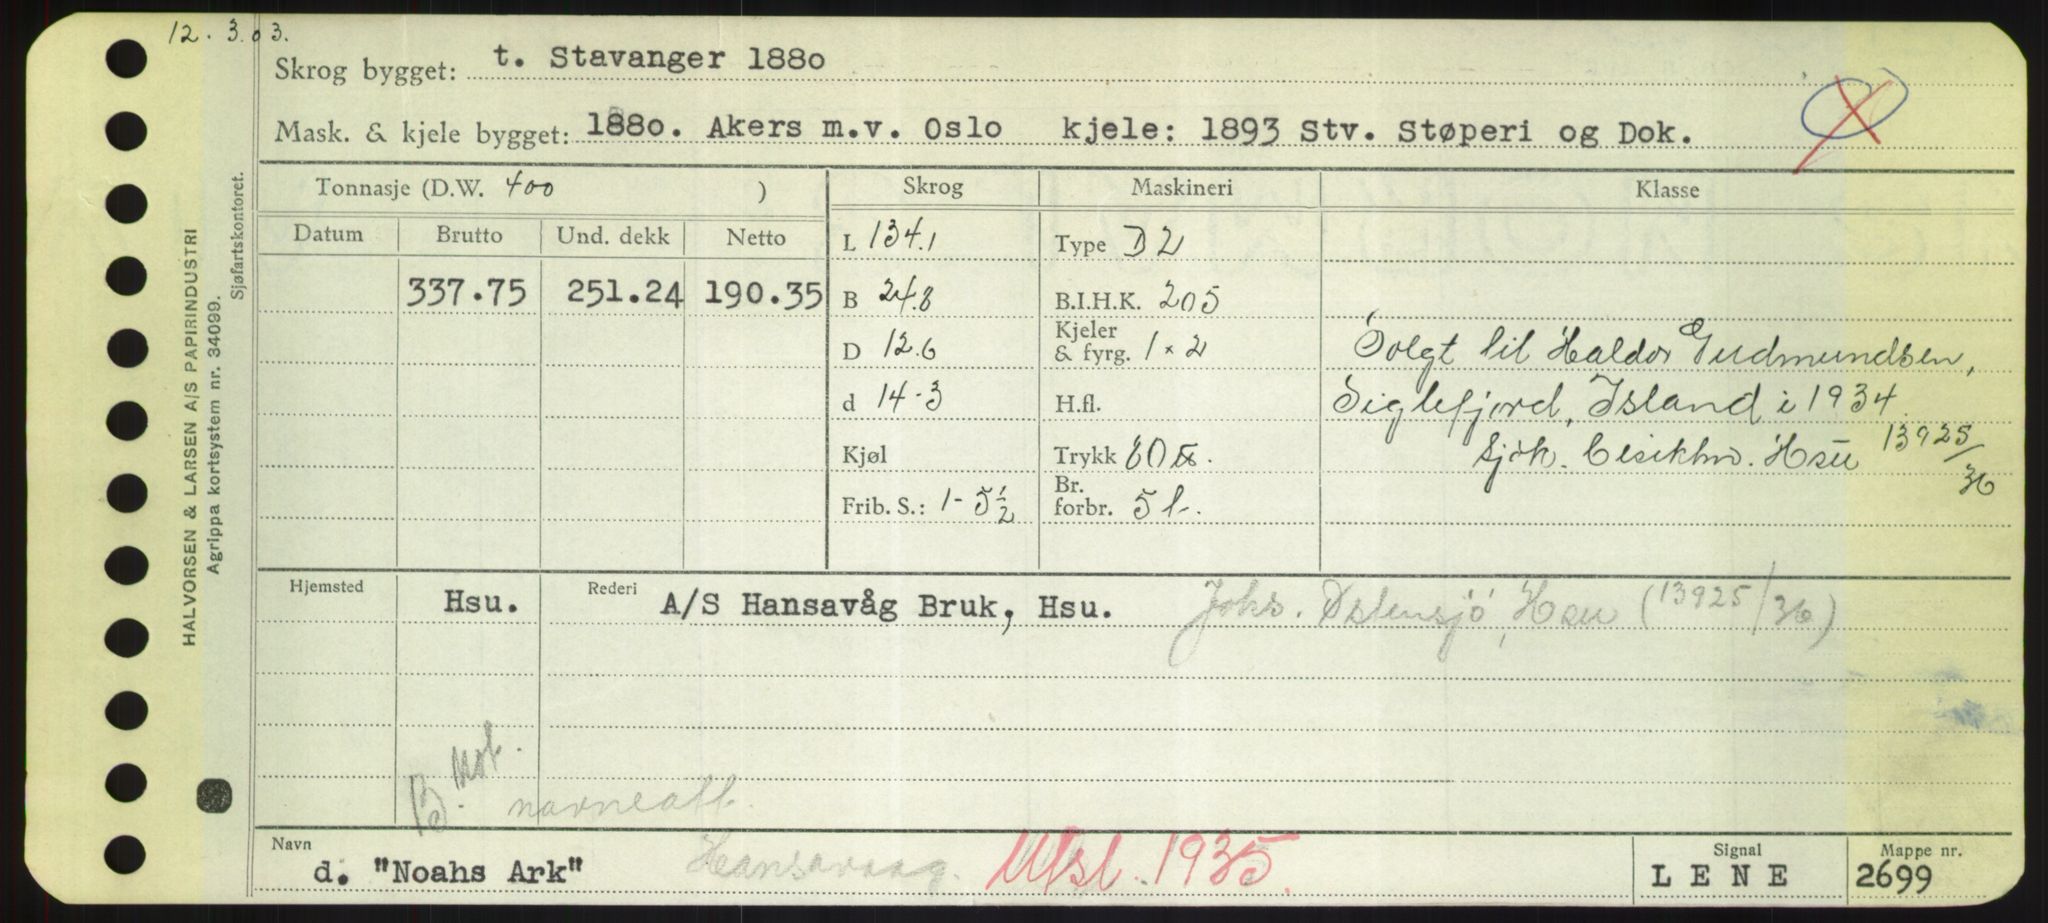 12. 3. 03.
Skrog bygget: t. Stavanger 1880
Mask. & kjele bygget: 1880. Akers m.v. Oslo kjele: 1893 Stv. Støperi og Dok.
Tonnasje (D.W. 400 ) Skrog Maskineri Klasse
Datum Brutto Und. dekk Netto L 134.1 Type D 2
337.75 251.24 190.35 B 24.8 B.I.H.K. 205
D 12.6 Kjeler & fyrg. 1 x 2 Solgt til Haldor Gudmundsen,
d 14-3 H.fl. Siglefjord, Island i 1934.
Kjøl Trykk 80 Sjøk. Hsu 13925/36
Frib. S.: 1-5½ Br. forbr. 5 t.
Hjemsted Hsu. Rederi A/S Hansavåg Bruk, Hsu. Johs. Østensjö, Hsu (13925/36)
B. Mot.
navneatt.
Navn d. "Noahs Ark" Hansavaag. Utsl. 1935. Signal LENE Mappe nr. 2699
HALVORSEN & LARSEN A/S PAPIRINDUSTRI
Agrippa kortsystem nr. 34099.
Sjøfartskontoret.